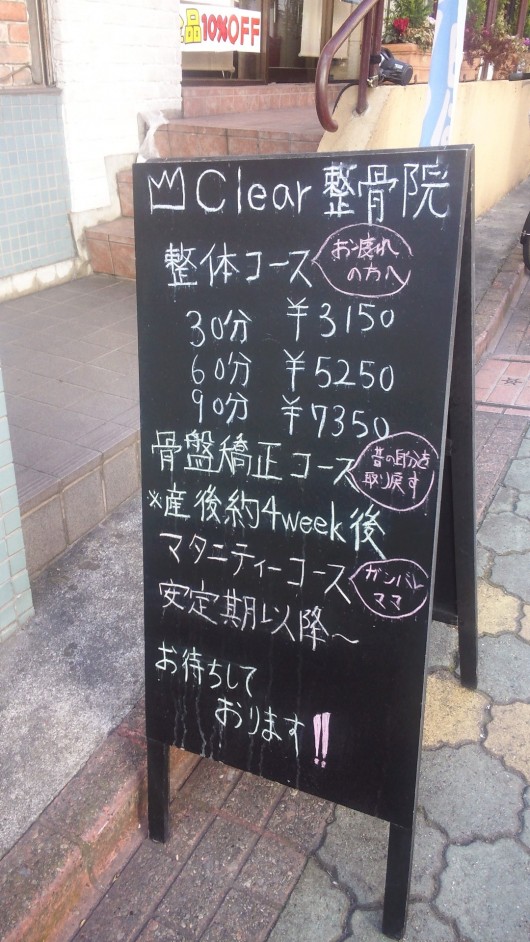 品10%OFF
Clear 整骨院
整体コース
お疲れ
の方へ
30分 ¥3150
60分 ¥5250
90分 ¥7350
骨盤矯正コース
昔の自分を
取り戻す
※産後約4week後
マタニティーコース
ガンバレ
ママ
安定期以降〜
お待ちして
おります!!